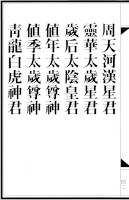 周天河漢星君
靈華太歲星君
歲后太陰皇君
值年太歲尊神
值季太歲尊神
青龍白虎神君